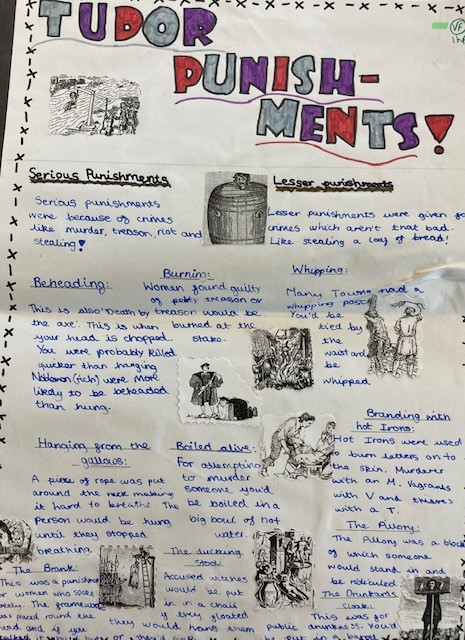 TUDOR
PUNISH-
MENTS!
VF
Serious Punishments
Serious punishments
were because of crimes
like murder, treason, riot and
stealing!
Lesser punishments
Lesser punishments were given
crimes which aren't that bad.
Like stealing a loaf of bread!
Beheading:
This is also 'Death by
the axe'. This is when
your head is chopped.
You were probably killed
quicker than hanging
Noblemen (rich) were more
likely to be beheaded
than hung.
Burning:
Women found guilty
of petty treason or
treason would be
burned at the
stake.
Whipping:
Many Towns had a
whipping post
You'd be
tied by
the
waist and
be
whipped.
Hanging from the
gallows:
A piece of rope was put
around the neck making
it hard to breathe. The
person would be hung
until they stopped
breathing.
Boiled alive:
For attempting
to murder
someone you'd
be boiled in a
big bowl of hot
water
Branding with
hot Irons:
Hot Irons were used
to burn letters on to
the skin. Murderer
with an M. Vagrants
with V and thieves
with a T.
The Pillory:
The Pillory was a block
of which someone
would stand in and
be ridiculed
The Brank:
This was a punishment
for women who spoke
The framework
was placed round the
and if you
The ducking
stool
Accused witches
would be put
in a chair
if they floated
they would hang them
or they'd
The Drunkards
cloak:
This was for
public drunkness. You'd
be put in a barrel